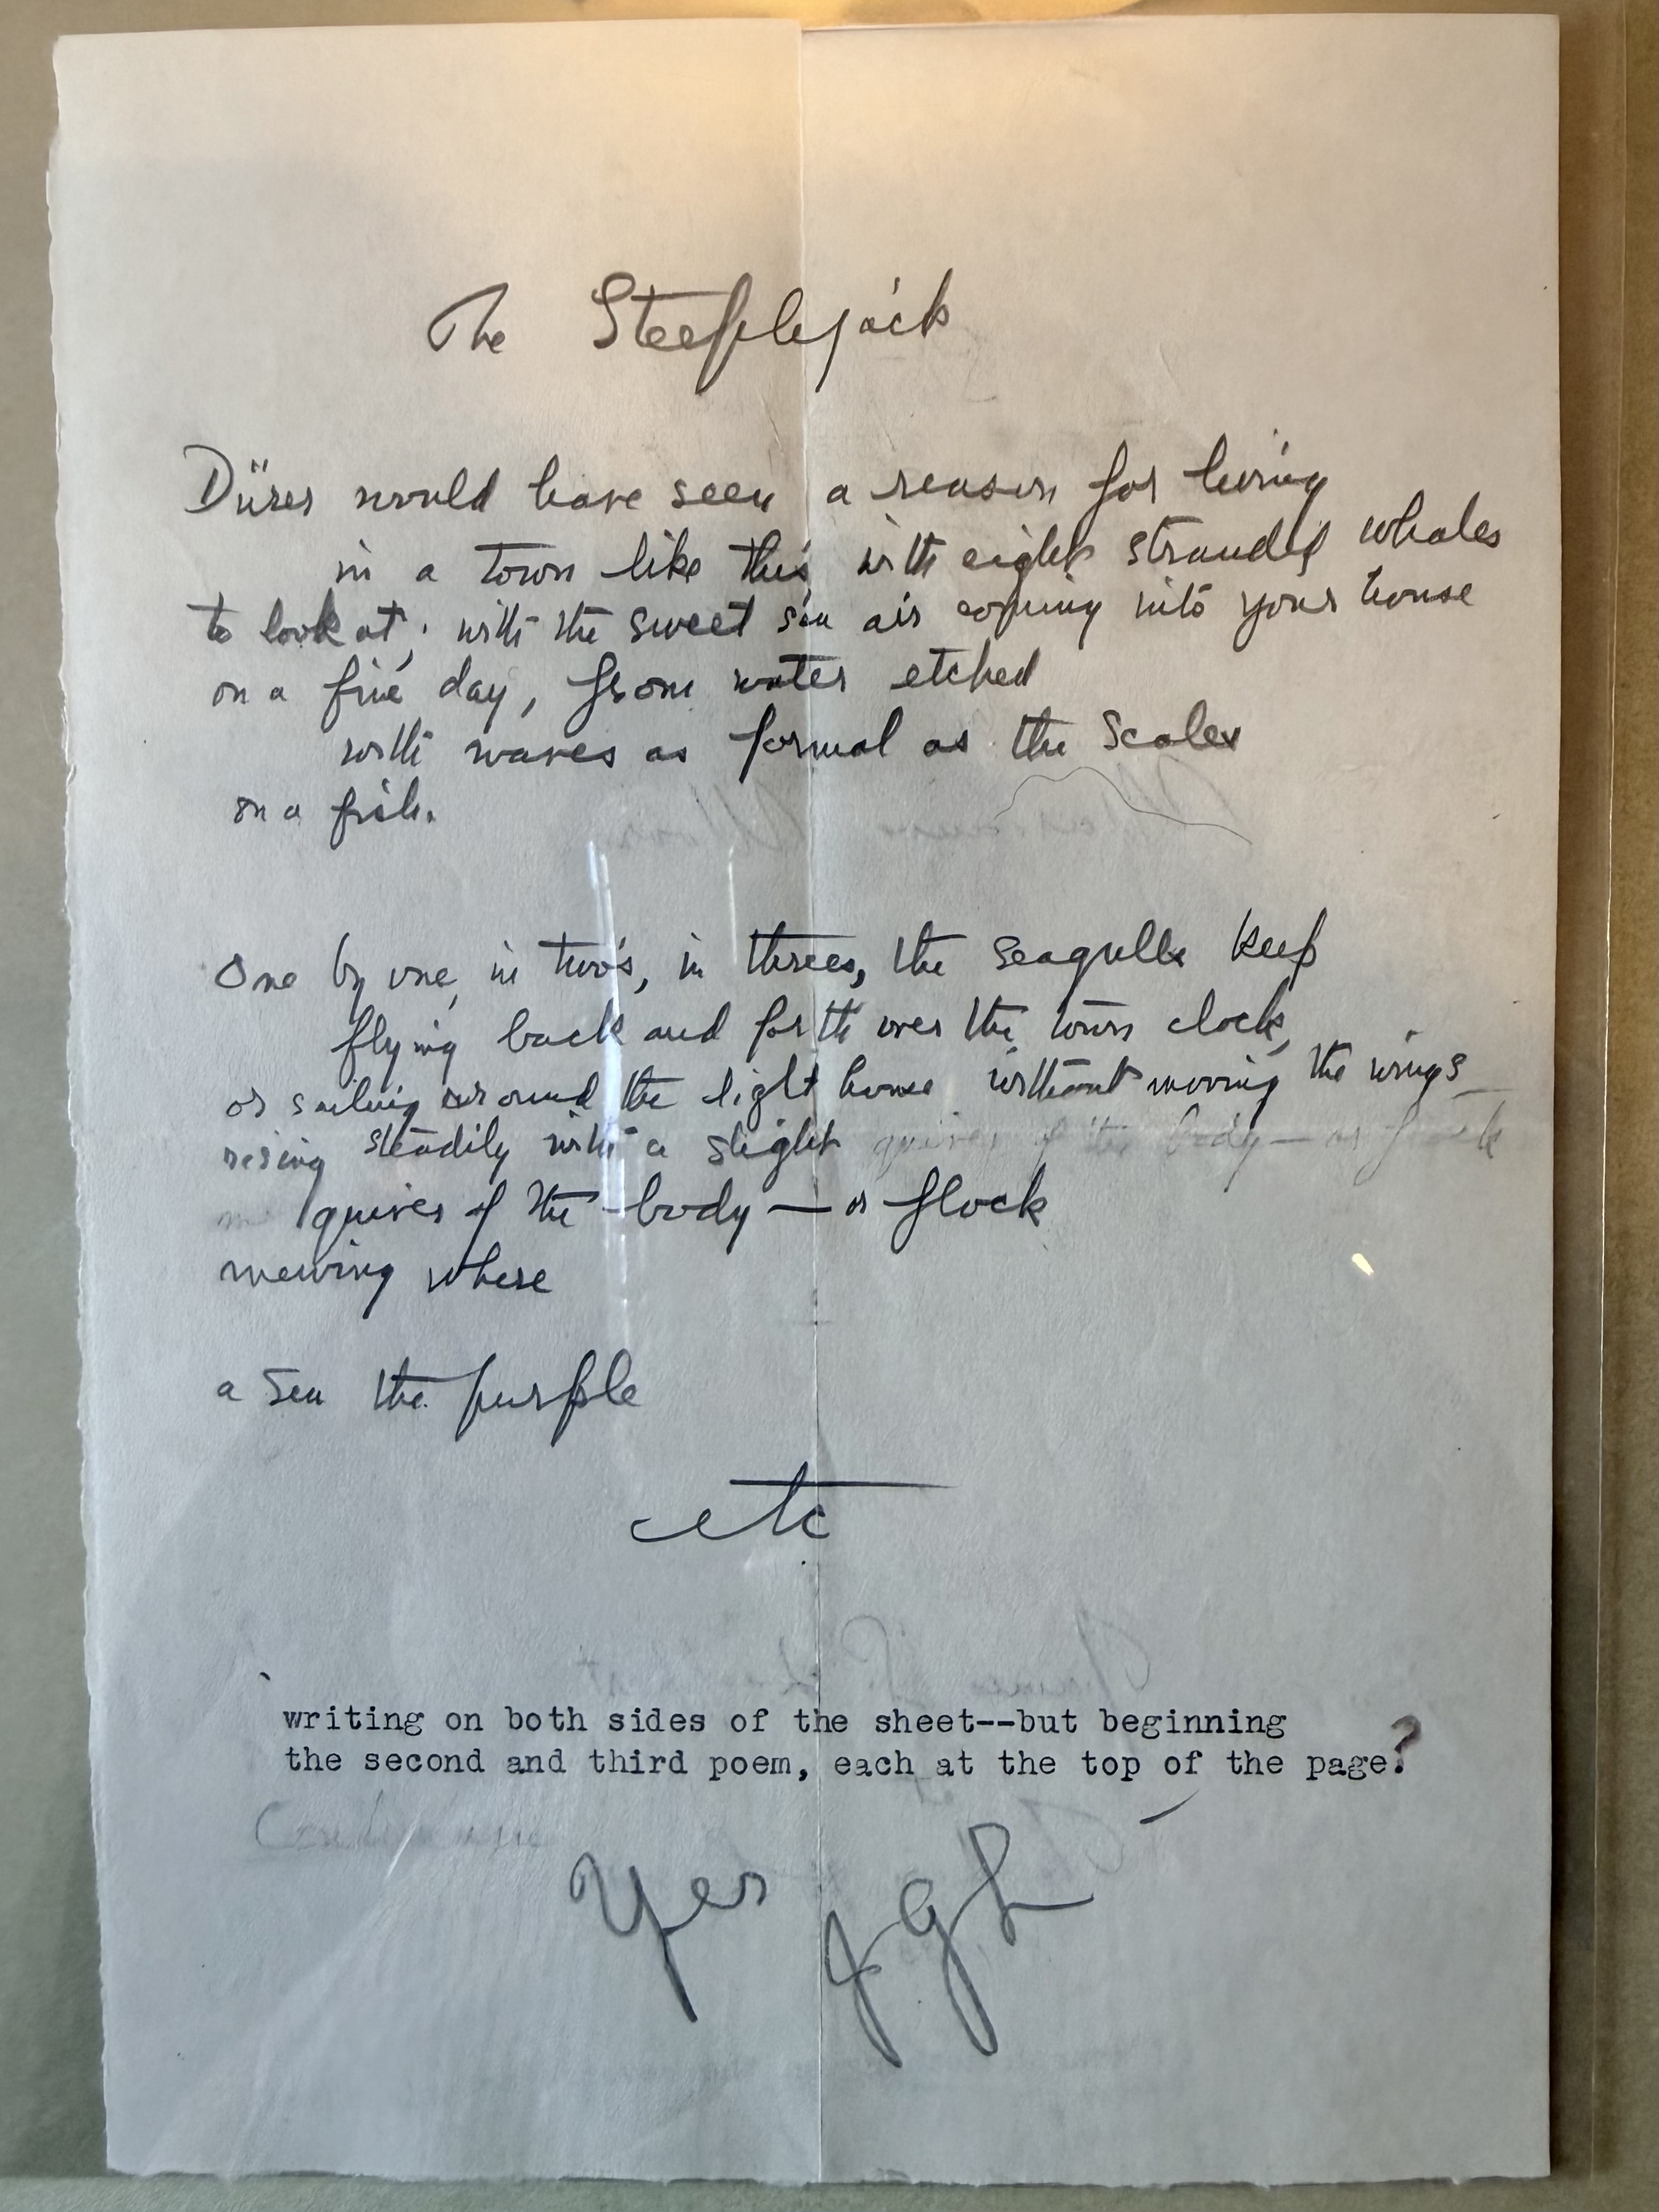 The Steeplejack
Dürer would have seen a reason for living
in a town like this, with eight stranded whales
to look at; with the sweet sea air coming into your house
on a fine day, from water etched
with waves as formal as the scales
on a fish.
One by one, in two's, in threes, the seagulls keep
flying back and forth over the town clock,
or sailing around the light house without moving the wings
rising steadily with a slight quiver of the body — or flock
quiver of the body — or flock
mewing where
a sea the purple
etc
writing on both sides of the sheet--but beginning
the second and third poem, each at the top of the page?
Yes JGL